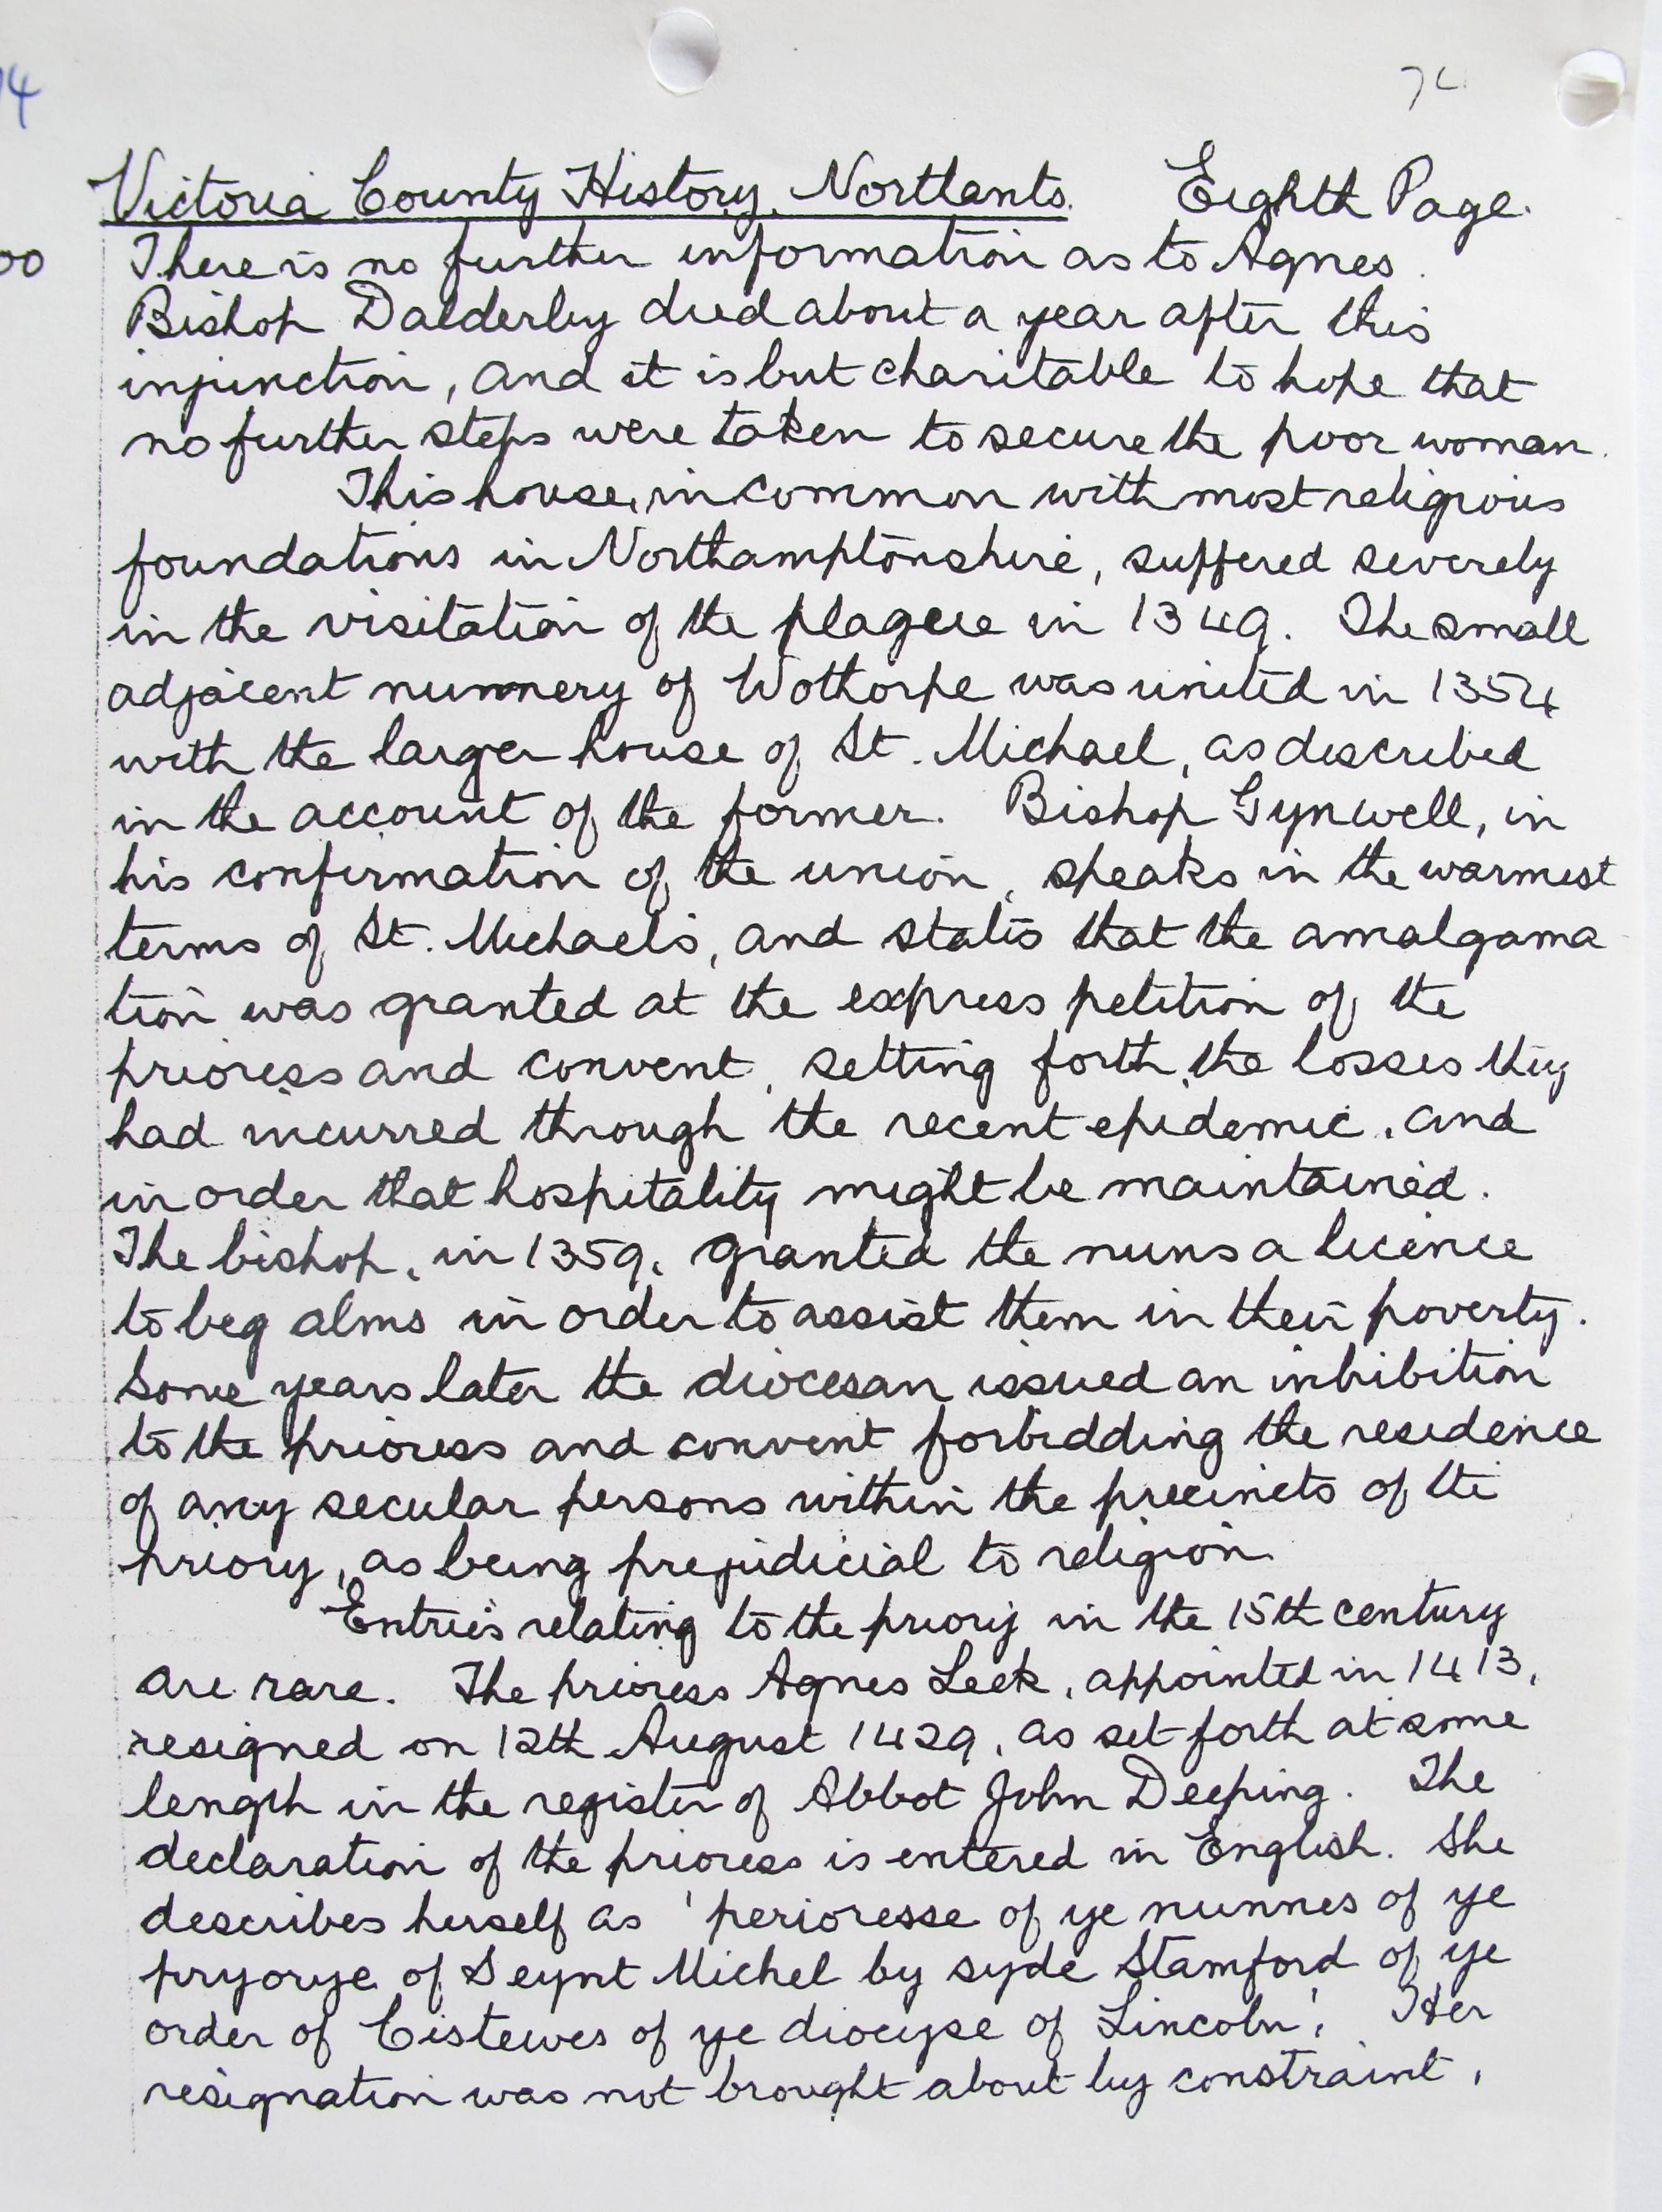 74
Victoria County History, Northants. Eighth Page.
There is no further information as to Agnes.
Bishop Dalderby died about a year after this
injunction, and it is but charitable to hope that
no further steps were taken to secure the poor woman.
This house, in common with most religious
foundations in Northamptonshire, suffered severely
in the visitation of the plague in 1349. The small
adjacent nunnery of Wothorpe was united in 1354
with the larger house of St. Michael, as described
in the account of the former. Bishop Gynwell, in
his confirmation of the union, speaks in the warmest
terms of St. Michael's, and states that the amalgama
tion was granted at the express petition of the
prioress and convent, setting forth the losses they
had incurred through the recent epidemic, and
in order that hospitality might be maintained.
The bishop, in 1359, granted the nuns a licence
to beg alms in order to assist them in their poverty.
Some years later the diocesan issued an inhibition
to the prioress and convent forbidding the residence
of any secular persons within the precincts of the
priory, as being prejudicial to religion.
Entries relating to the priory in the 15th century
are rare. The prioress Agnes Leek, appointed in 1413,
resigned on 12th August 1429, as set forth at some
length in the register of Abbot John Deeping. The
declaration of the prioress is entered in English. She
describes herself as 'perioresse of ye nunnes of ye
pryorye of Seynt Michel by syde Stamford of ye
order of Cistewes of ye diocyse of Lincoln'. Her
resignation was not brought about by constraint,